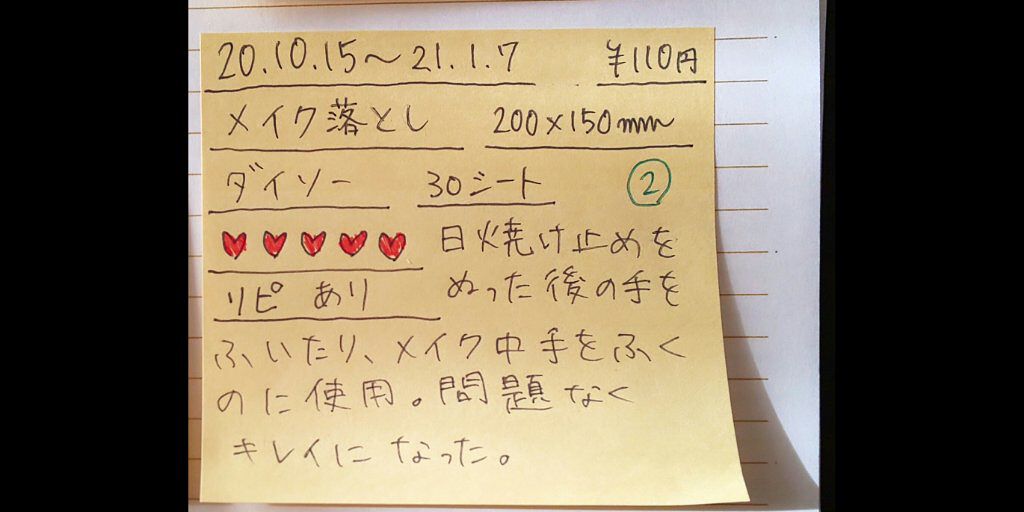 20.10.15～21.1.7 ¥110円
メイク落とし 200×150mm
ダイソー 30シート ②
♥♥♥♥♥ 日焼け止めを
リピ あり ぬった後の手を
ふいたり、メイク中手をふく
のに使用。問題なく
キレイになった。